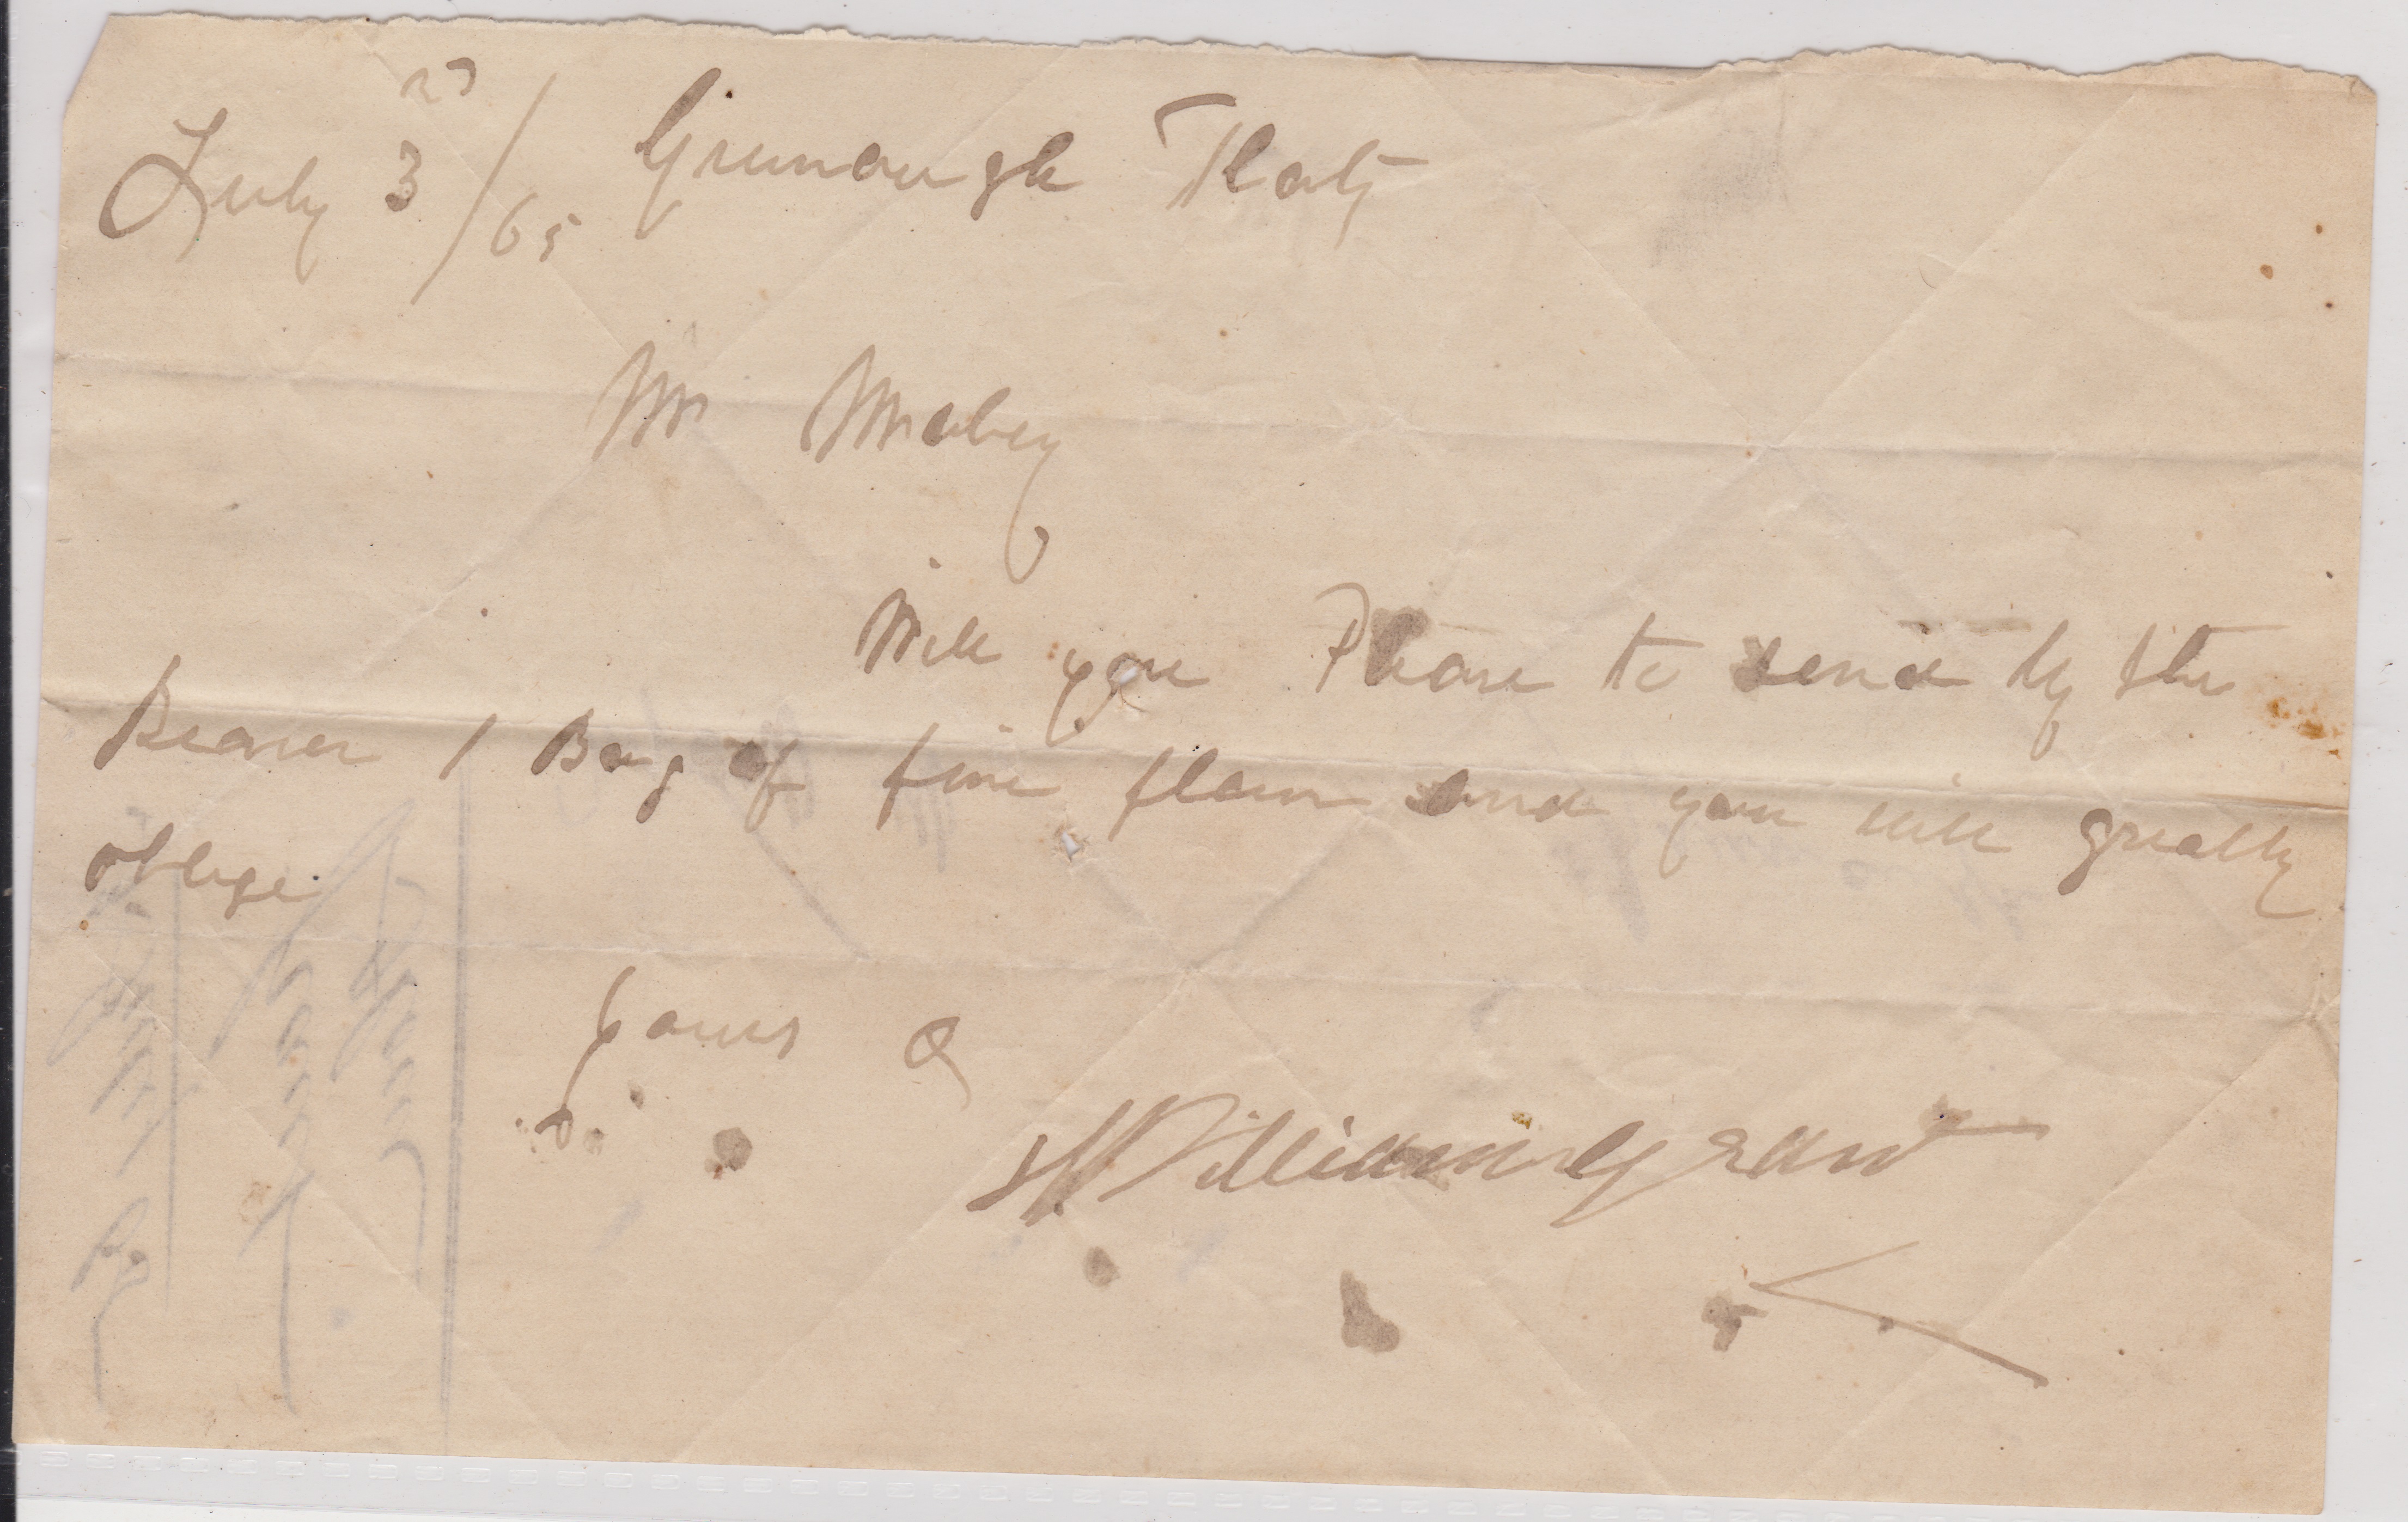 July 3rd/65 Greenough Flats
Mr Mabey
Will you Please to send by the
Bearer 1 Bag of fine flour and you will greatly
oblige
Yours &
William Grant